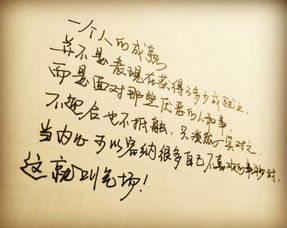 一个人的成熟
并不是表现在获得了多少成就上
而是面对那些厌恶的人和事
不迎合也不抵触，只淡然一笑对之
当内心可以容纳很多自己不喜欢的事物时，
这就叫气场！